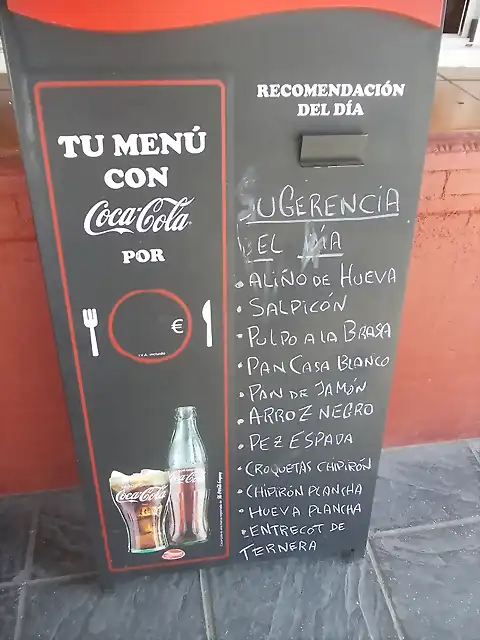 TU MENÚ
CON
Coca-Cola
POR
€
I.V.A. incluido
Coca-Cola
Coca-Cola
RECOMENDACIÓN
DEL DÍA
SUGERENCIA
DEL DÍA
• ALIÑO DE HUEVA
• SALPICÓN
• PULPO A LA BRASA
• PAN CASA BLANCO
• PAN DE JAMÓN
• ARROZ NEGRO
• PEZ ESPADA
• CROQUETAS CHIPIRÓN
• CHIPIRÓN PLANCHA
• HUEVA PLANCHA
• ENTRECOT DE
TERNERA